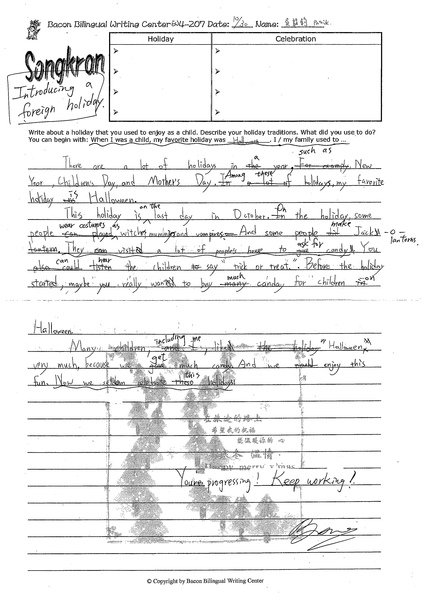 Bacon Bilingual Writing Center W4-207 Date: 10/30 Name:
Holiday Celebration
Songkran
Introducing a
foreign holiday
Write about a holiday that you used to enjoy as a child. Describe your holiday traditions. What did you use to do?
You can begin with: When I was a child, my favorite holiday was Halloween. I / my family used to ...
such as
There are a lot of holidays in the a year, For New
Year, Children's Day, and Mother's Day. Among these
In a lot of holidays, my favorite
holiday is in Halloween.
This holiday is on the last day in October. On In the holiday, some
wear costumes as make
people can played witch, mummies and vampires. And some people Jack-o-
lanterns
lantern. They can visited a lot of people's house to ask for candy. You
also could hear listen the children say "trick or treat." Before the holiday
started, maybe we really wanted to buy much many canday for children on
Halloween.
including me
Many children and I, like the holiday "Halloween"
very much, because we get much candy. And we enjoy this
fun. Now we seldom celebrate this these holidays!
You're progressing! Keep working!
© Copyright by Bacon Bilingual Writing Center